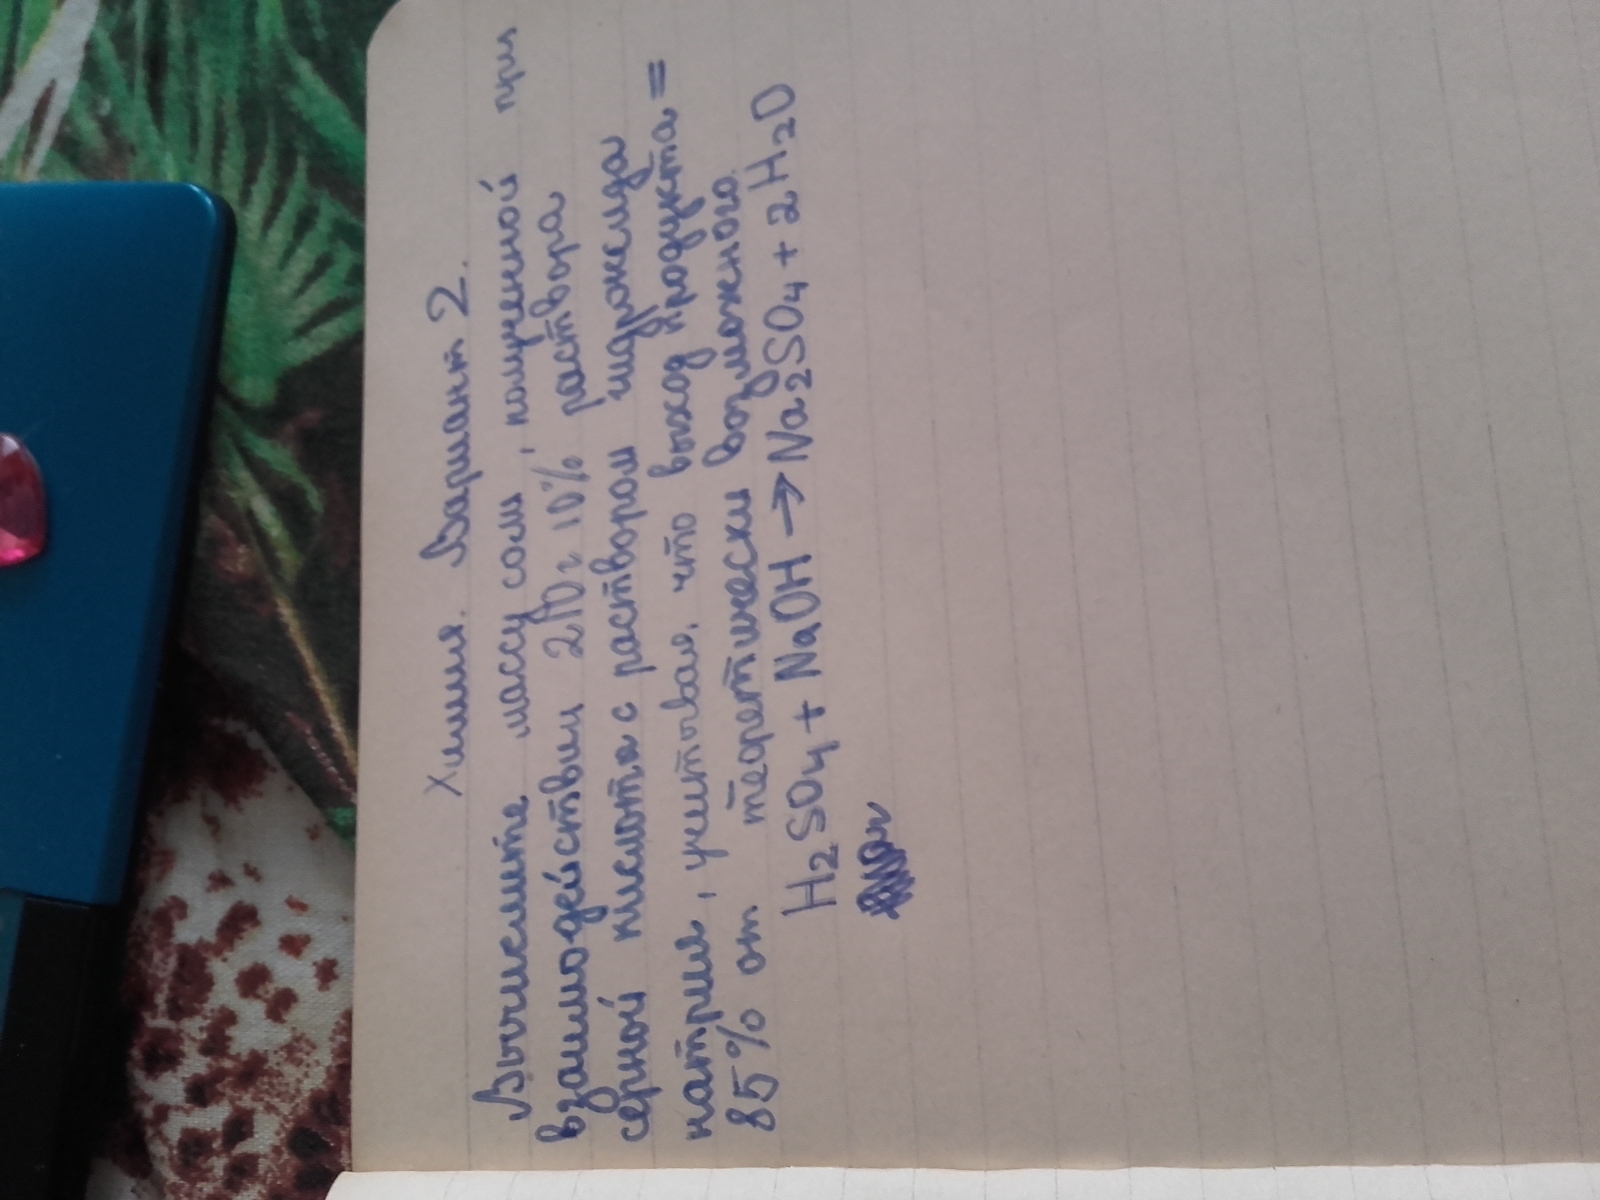 Химия. Вариант 2.
Вычислите массу соли, полученной при
взаимодействии 210г 10% раствора
серной кислоты с раствором гидроксида
натрия, учитывая, что выход продукта =
85% от теоретически возможного.
H₂SO₄ + NaOH → Na₂SO₄ + 2H₂O